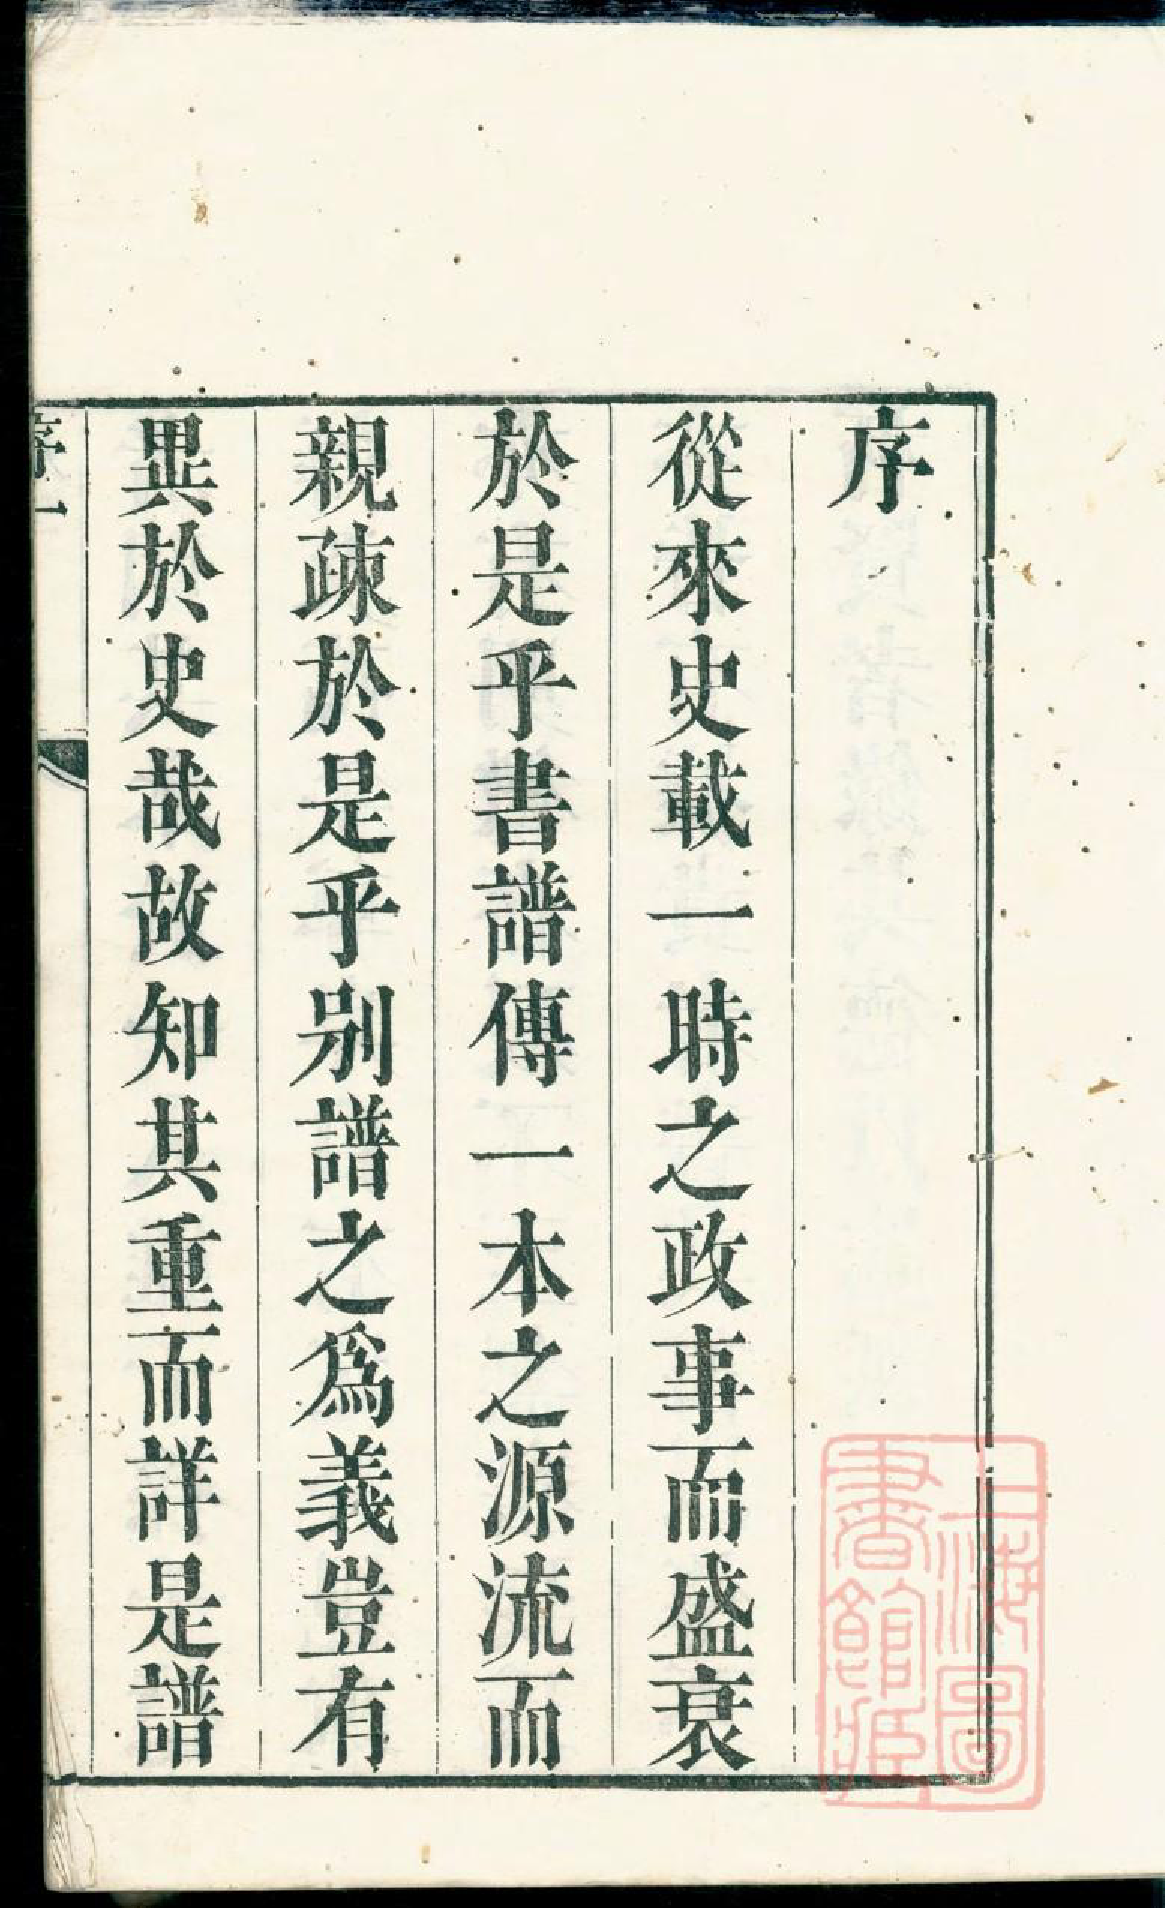 序
從來史載一時之政事而盛衰
於是乎書譜傳一本之源流而
親疎於是乎別譜之爲義豈有
異於史哉故知其重而詳是譜
序一
上海圖
書館藏